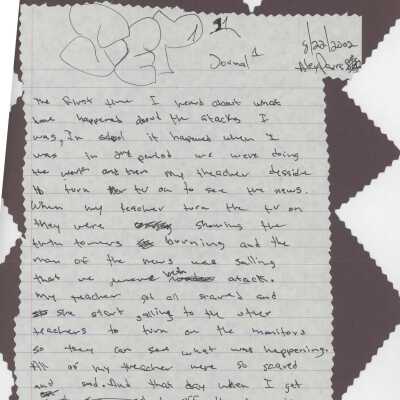 Sept 11
Journal 1
9/22/2002
The first time I heard about what
have happened about the atacks I
was, In school it happened when I
was in 3rd period we were doing
the work and then my theacher desside
to turn the tv on to see the news.
When my teacher turn the tv on
they were showing the
twin towers burning and the
man of the news was salling
that we were been atack.
My teacher got all scared and
she start yelling to the other
teachers to turn on the monitors
so they can see what was happening.
All of my theacher were so scared
and sad. And that day when I get